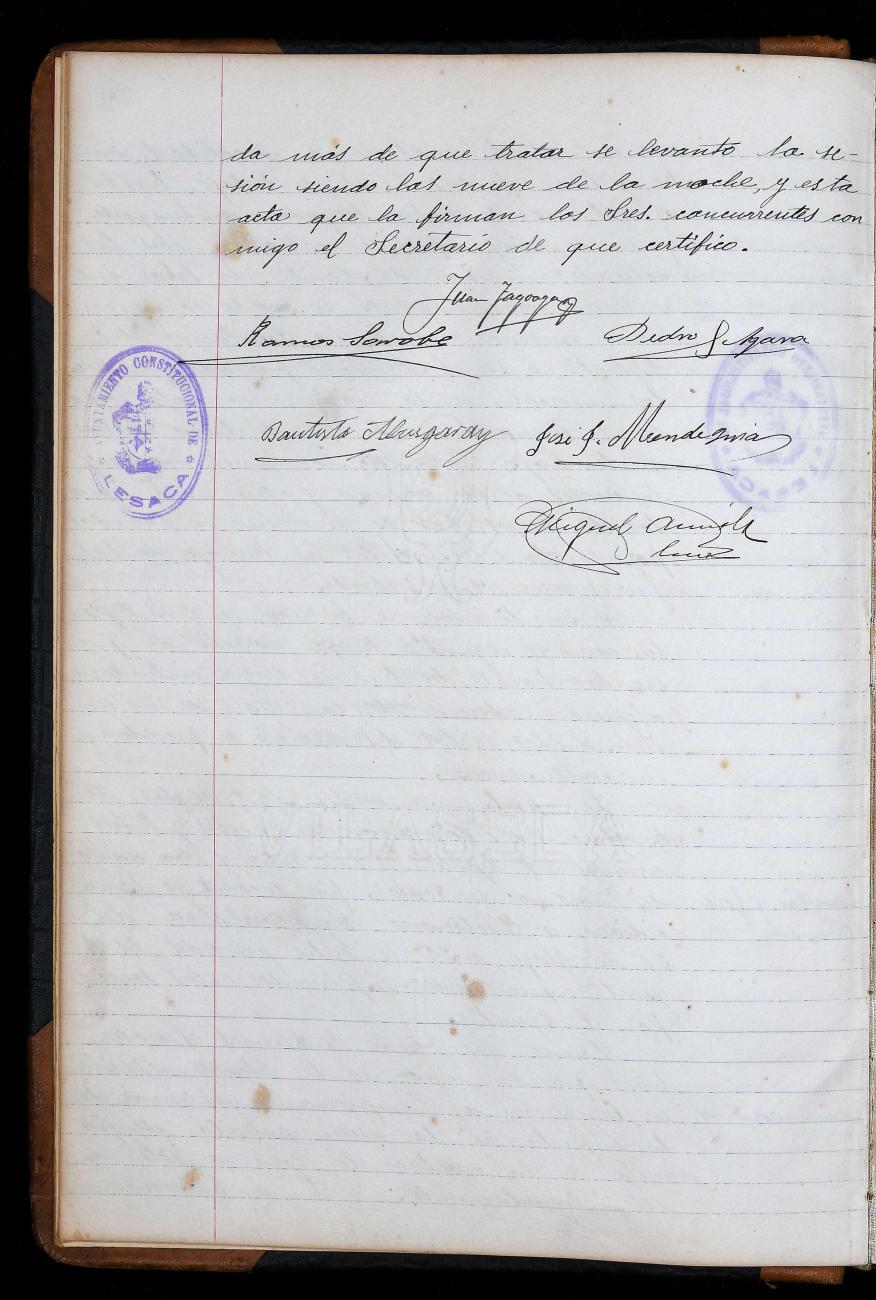 da más de que tratar se levantó la se-
sión siendo las nueve de la noche, y esta
acta que la firman los Sres. concurrentes con
migo el Secretario de que certifico.
Juan
Ramos Sarobe
Pedro
AYUNTAMIENTO CONSTITUCIONAL DE
LESACA
Bautista
José J. Mendezona
Miguel